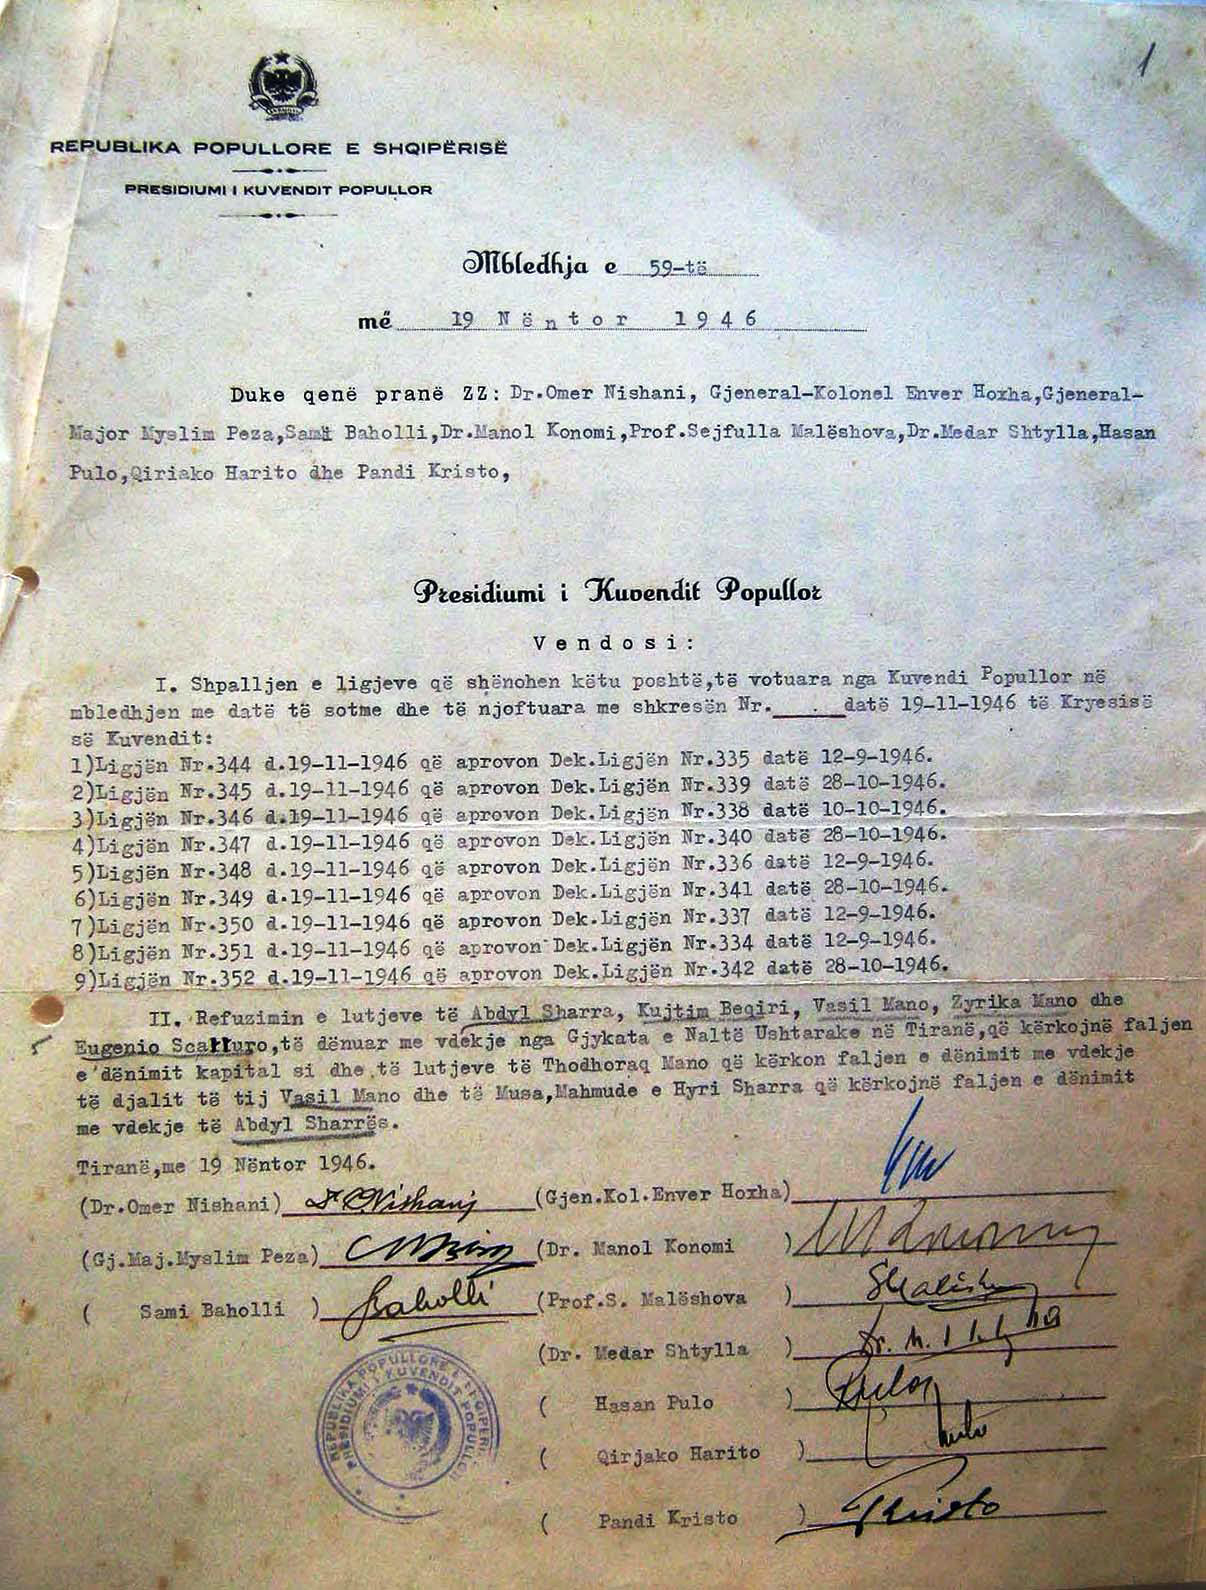 1
REPUBLIKA POPULLORE E SHQIPËRISË
PRESIDIUMI I KUVENDIT POPULLOR
Mbledhja e 59-të
më 19 Nëntor 1946
Duke qenë pranë ZZ: Dr.Omer Nishani, Gjeneral-Kolonel Enver Hoxha,Gjeneral-
Major Myslim Peza, Baholli,Dr.Manol Konomi,Prof.Sejfulla Malëshova,Dr.Medar Shtylla,Hasan
Pulo,Qiriako Harito dhe Pandi Kristo,
Presidiumi i Kuvendit Popullor
Vendosi:
I. Shpalljen e ligjeve që shënohen këtu poshtë,të votuara nga Kuvendi Popullor në
mbledhjen me datë të sotme dhe të njoftuara me shkresën Nr. . datë 19-11-1946 të Kryesisë
së Kuvendit:
1)Ligjën Nr.344 d.19-11-1946 që aprovon Dek.Ligjën Nr.335 datë 12-9-1946.
2)Ligjën Nr.345 d.19-11-1946 që aprovon Dek.Ligjën Nr.339 datë 28-10-1946.
3)Ligjën Nr.346 d.19-11-1946 që aprovon Dek.Ligjën Nr.338 datë 10-10-1946.
4)Ligjën Nr.347 d.19-11-1946 që aprovon Dek.Ligjën Nr.340 datë 28-10-1946.
5)Ligjën Nr.348 d.19-11-1946 që aprovon Dek.Ligjën Nr.336 datë 12-9-1946.
6)Ligjën Nr.349 d.19-11-1946 që aprovon Dek.Ligjën Nr.341 datë 28-10-1946.
7)Ligjën Nr.350 d.19-11-1946 që aprovon Dek.Ligjën Nr.337 datë 12-9-1946.
8)Ligjën Nr.351 d.19-11-1946 që aprovon Dek.Ligjën Nr.334 datë 12-9-1946.
9)Ligjën Nr.352 d.19-11-1946 që aprovon Dek.Ligjën Nr.342 datë 28-10-1946.
II. Refuzimin e lutjeve të Abdyl Sharra, Kujtim Beqiri, Vasil Mano, Zyrika Mano dhe
Eugenio Scatturo,të dënuar me vdekje nga Gjykata e Naltë Ushtarake në Tiranë,që kërkojnë faljen
e dënimit kapital si dhe të lutjeve të Thodhoraq Mano që kërkon faljen e dënimit me vdekje
të djalit të tij Vasil Mano dhe të Musa,Mahmude e Hyri Sharra që kërkojnë faljen e dënimit
me vdekje të Abdyl Sharrës.
Tiranë,me 19 Nëntor 1946.
(Dr.Omer Nishani) Dr ONishani (Gjen.Kol.Enver Hoxha)
(Gj.Maj.Myslim Peza) (Dr. Manol Konomi )
( Sami Baholli ) Baholli (Prof.S. Malëshova )
(Dr. Medar Shtylla )
( Hasan Pulo ) Pulo
( Qirjako Harito )
( Pandi Kristo ) PKristo
REPUBLIKA POPULLORE E SHQIPERI
PRESIDIUMI I KUVENDIT POPULLOR